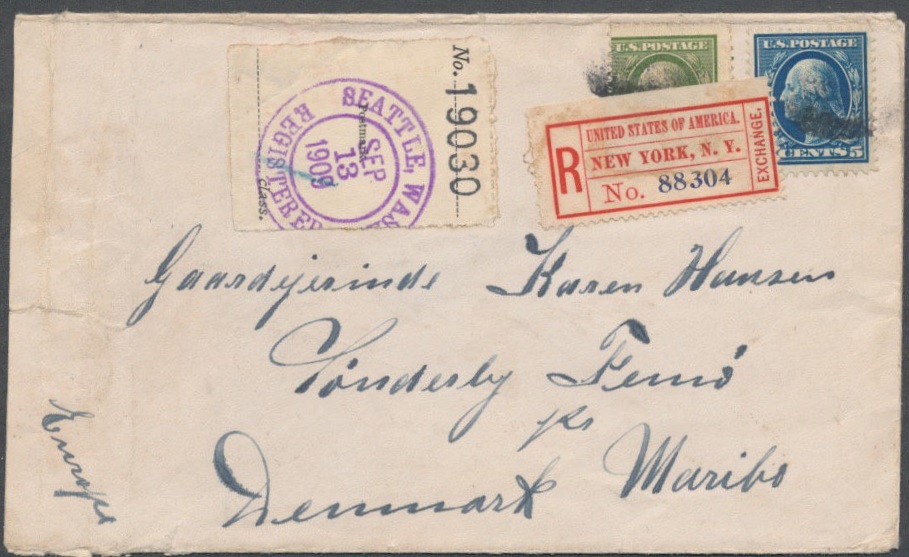 No. 19030
Postmark
SEATTLE, WAS
REGISTERED
SEP
13
1909
Class.
U.S. POSTAGE
U.S. POSTAGE
CENTS 5
R
UNITED STATES OF AMERICA.
NEW YORK, N. Y.
No. 88304
EXCHANGE.
Gaardejerinde Karen Hansen
Sönderby Femö
pr
Maribo
Denmark
Europe